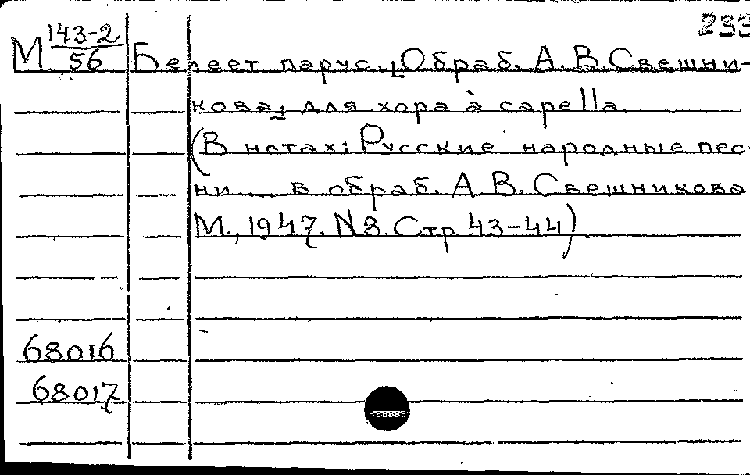 233
М 143-2/56 Белеет парус. Обраб. А. В. Свешни-
кова; для хора à capella.
(В нотах: Русские народные пес-
ни ... в обраб. А. В. Свешникова
М., 1947. № 8. Стр 43-44)
68016
68017